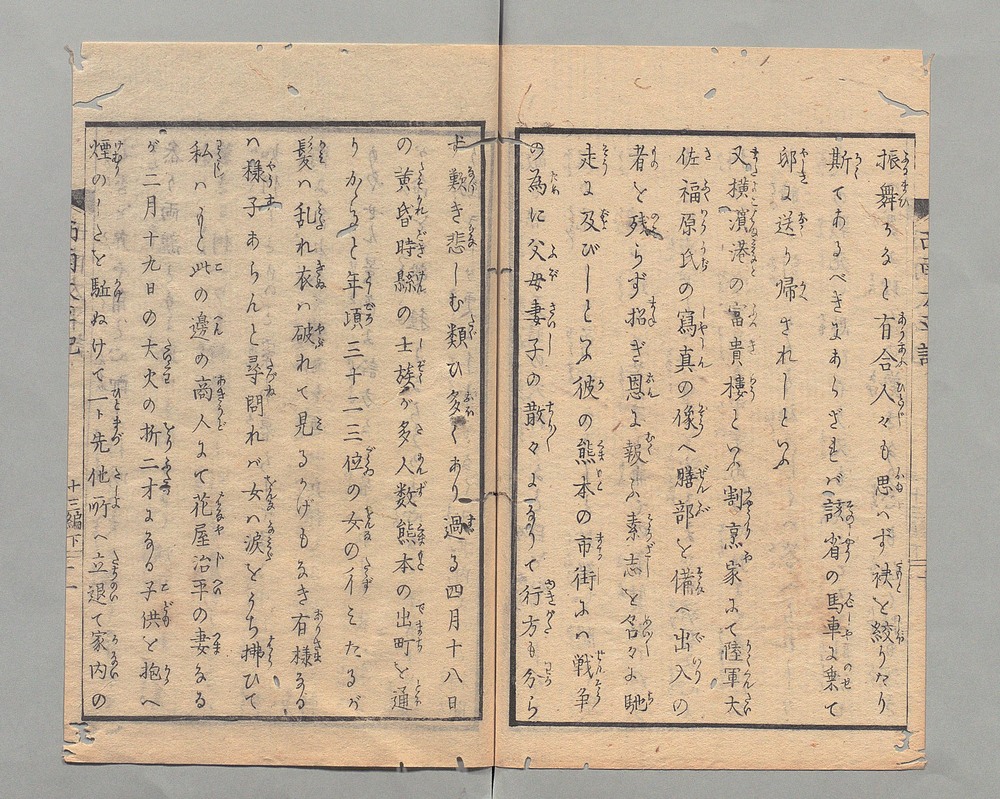 振舞ふると有合人々も思ハず袂を絞りけり
斯てあるべきにあらざれバ該省の馬車に乗て
邸に送り帰されしといふ
又横濵港の富貴樓といふ割烹家にて陸軍大
佐福原氏の寫真の像へ膳部を備へ出入の
者を残らず招ぎ恩に報ふ素志を名々に馳
走に及びしといふ彼の熊本の市街ハ戦争
の為に父母妻子の散々になりて行方も分ら
ず歎き悲しむ類ひ多くあり過る四月十八日
の黄昏時縣の士族が多人数熊本の出町を通
りかゝると年頃三十二三位の女の彳ミたるが
髪ハ乱れ衣ハ破れて見るかげもなき有様なる
ハ様子あらんと尋問れバ女ハ涙をうち拂ひて
私ハもと此の邊の商人にて花屋治平の妻なる
が二月十九日の大火の折二才になる子供を抱へ
煙のしたを駈ぬけて一ト先他所へ立退て家内の
十三編下
二